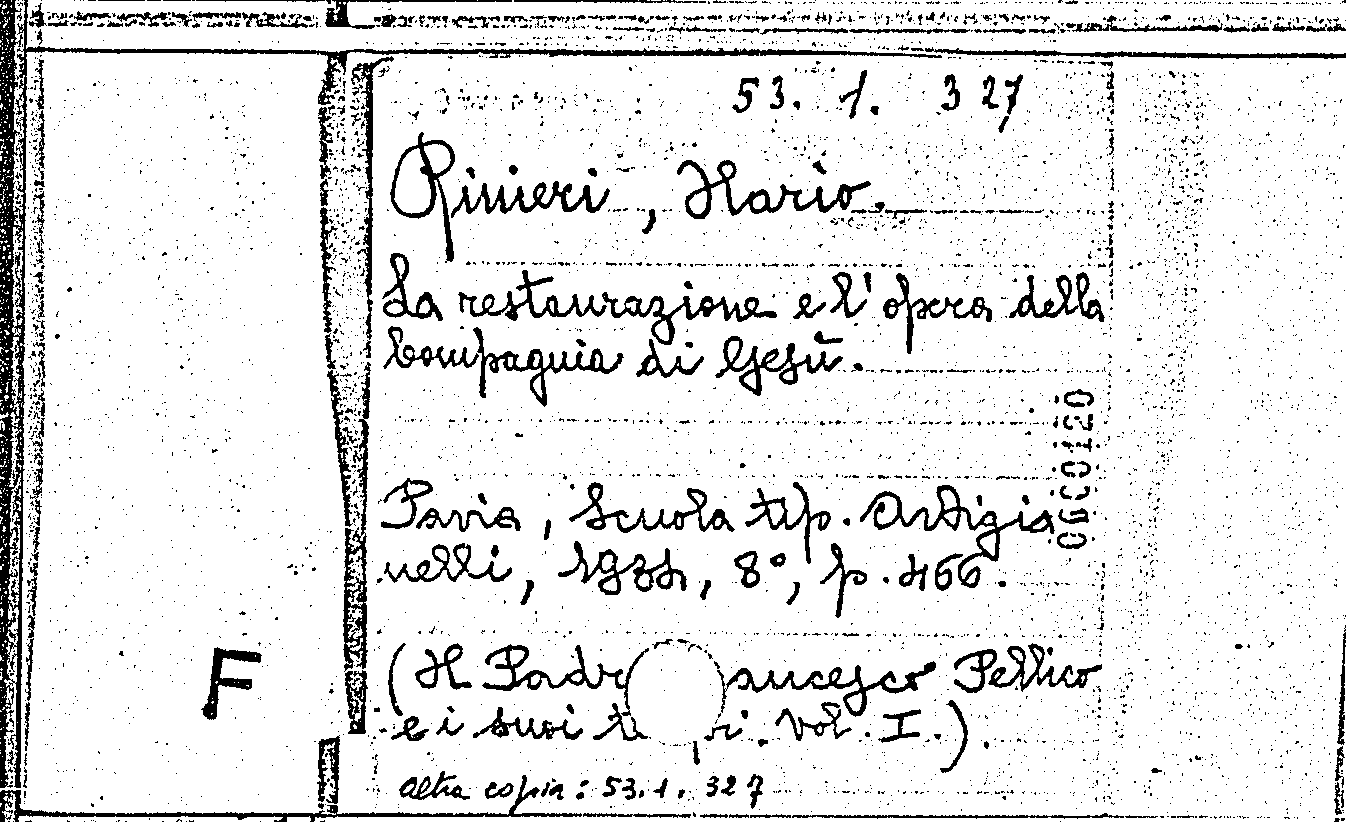 53. 1. 327
Rinieri, Ilario.
La restaurazione e l'opera della
Compagnia di Gesù.
Pavia, Scuola tip. Artigia
nelli, 1934, 8°, p. 466.
(Il Padr ancesco Pellico
e i suoi te pi. Vol. I.).
altra copia: 53.1. 327
F